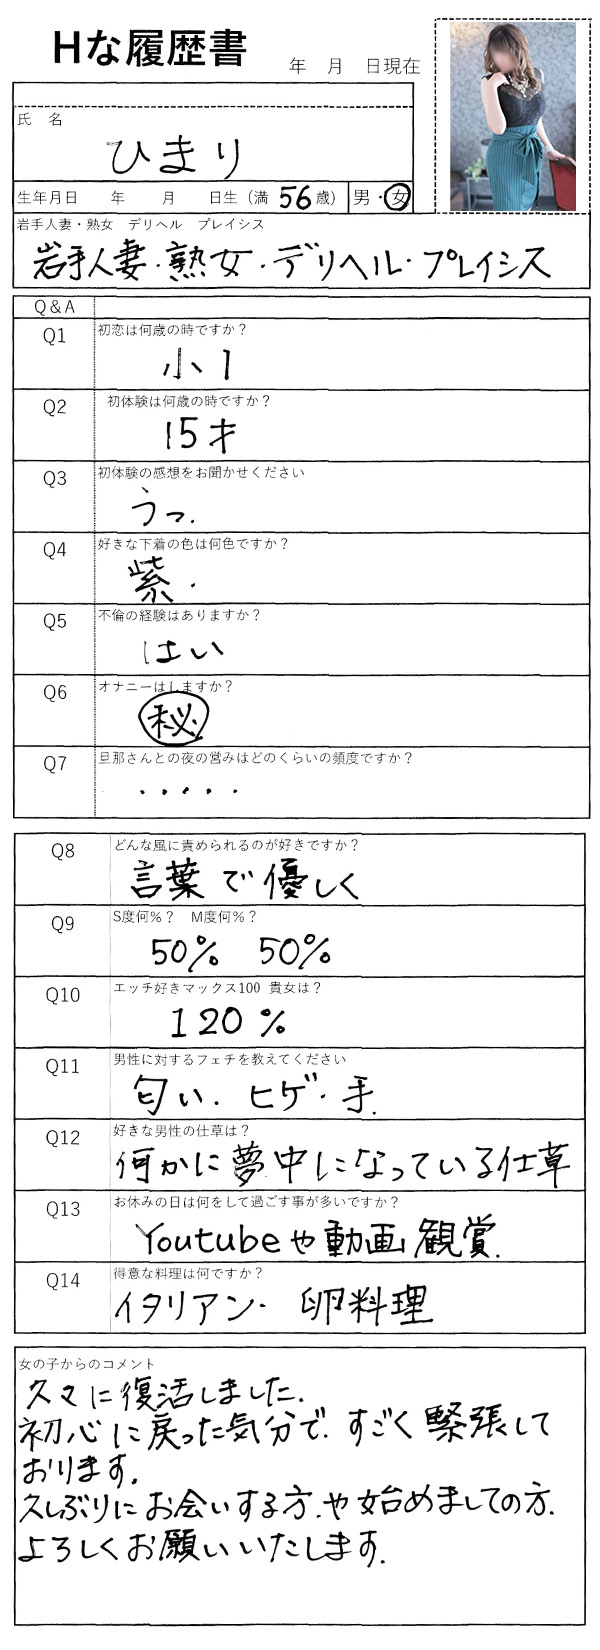 Hな履歴書
年 月 日現在
氏 名
ひまり
生年月日 年 月 日生 (満 56 歳) 男・女
岩手人妻・熟女 デリヘル プレイシス
岩手人妻・熟女・デリヘル・プレイシス
Q&A
Q1 初恋は何歳の時ですか?
小1
Q2 初体験は何歳の時ですか?
15才
Q3 初体験の感想をお聞かせください
うっ.
Q4 好きな下着の色は何色ですか?
紫.
Q5 不倫の経験はありますか?
はい
Q6 オナニーはしますか?
秘
Q7 旦那さんとの夜の営みはどのくらいの頻度ですか?
・・・・・
Q8 どんな風に責められるのが好きですか?
言葉で優しく
Q9 S度何%? M度何%?
50% 50%
Q10 エッチ好きマックス100 貴女は?
120%
Q11 男性に対するフェチを教えてください
匂い. ヒゲ・手.
Q12 好きな男性の仕草は?
何かに夢中になっている仕草
Q13 お休みの日は何をして過ごす事が多いですか?
Youtubeや動画観賞.
Q14 得意な料理は何ですか?
イタリアン・ 卵料理
女の子からのコメント
久々に復活しました.
初心に戻った気分で.すごく緊張して
おります.
久しぶりにお会いする方.や始めましての方.
よろしくお願いいたします.